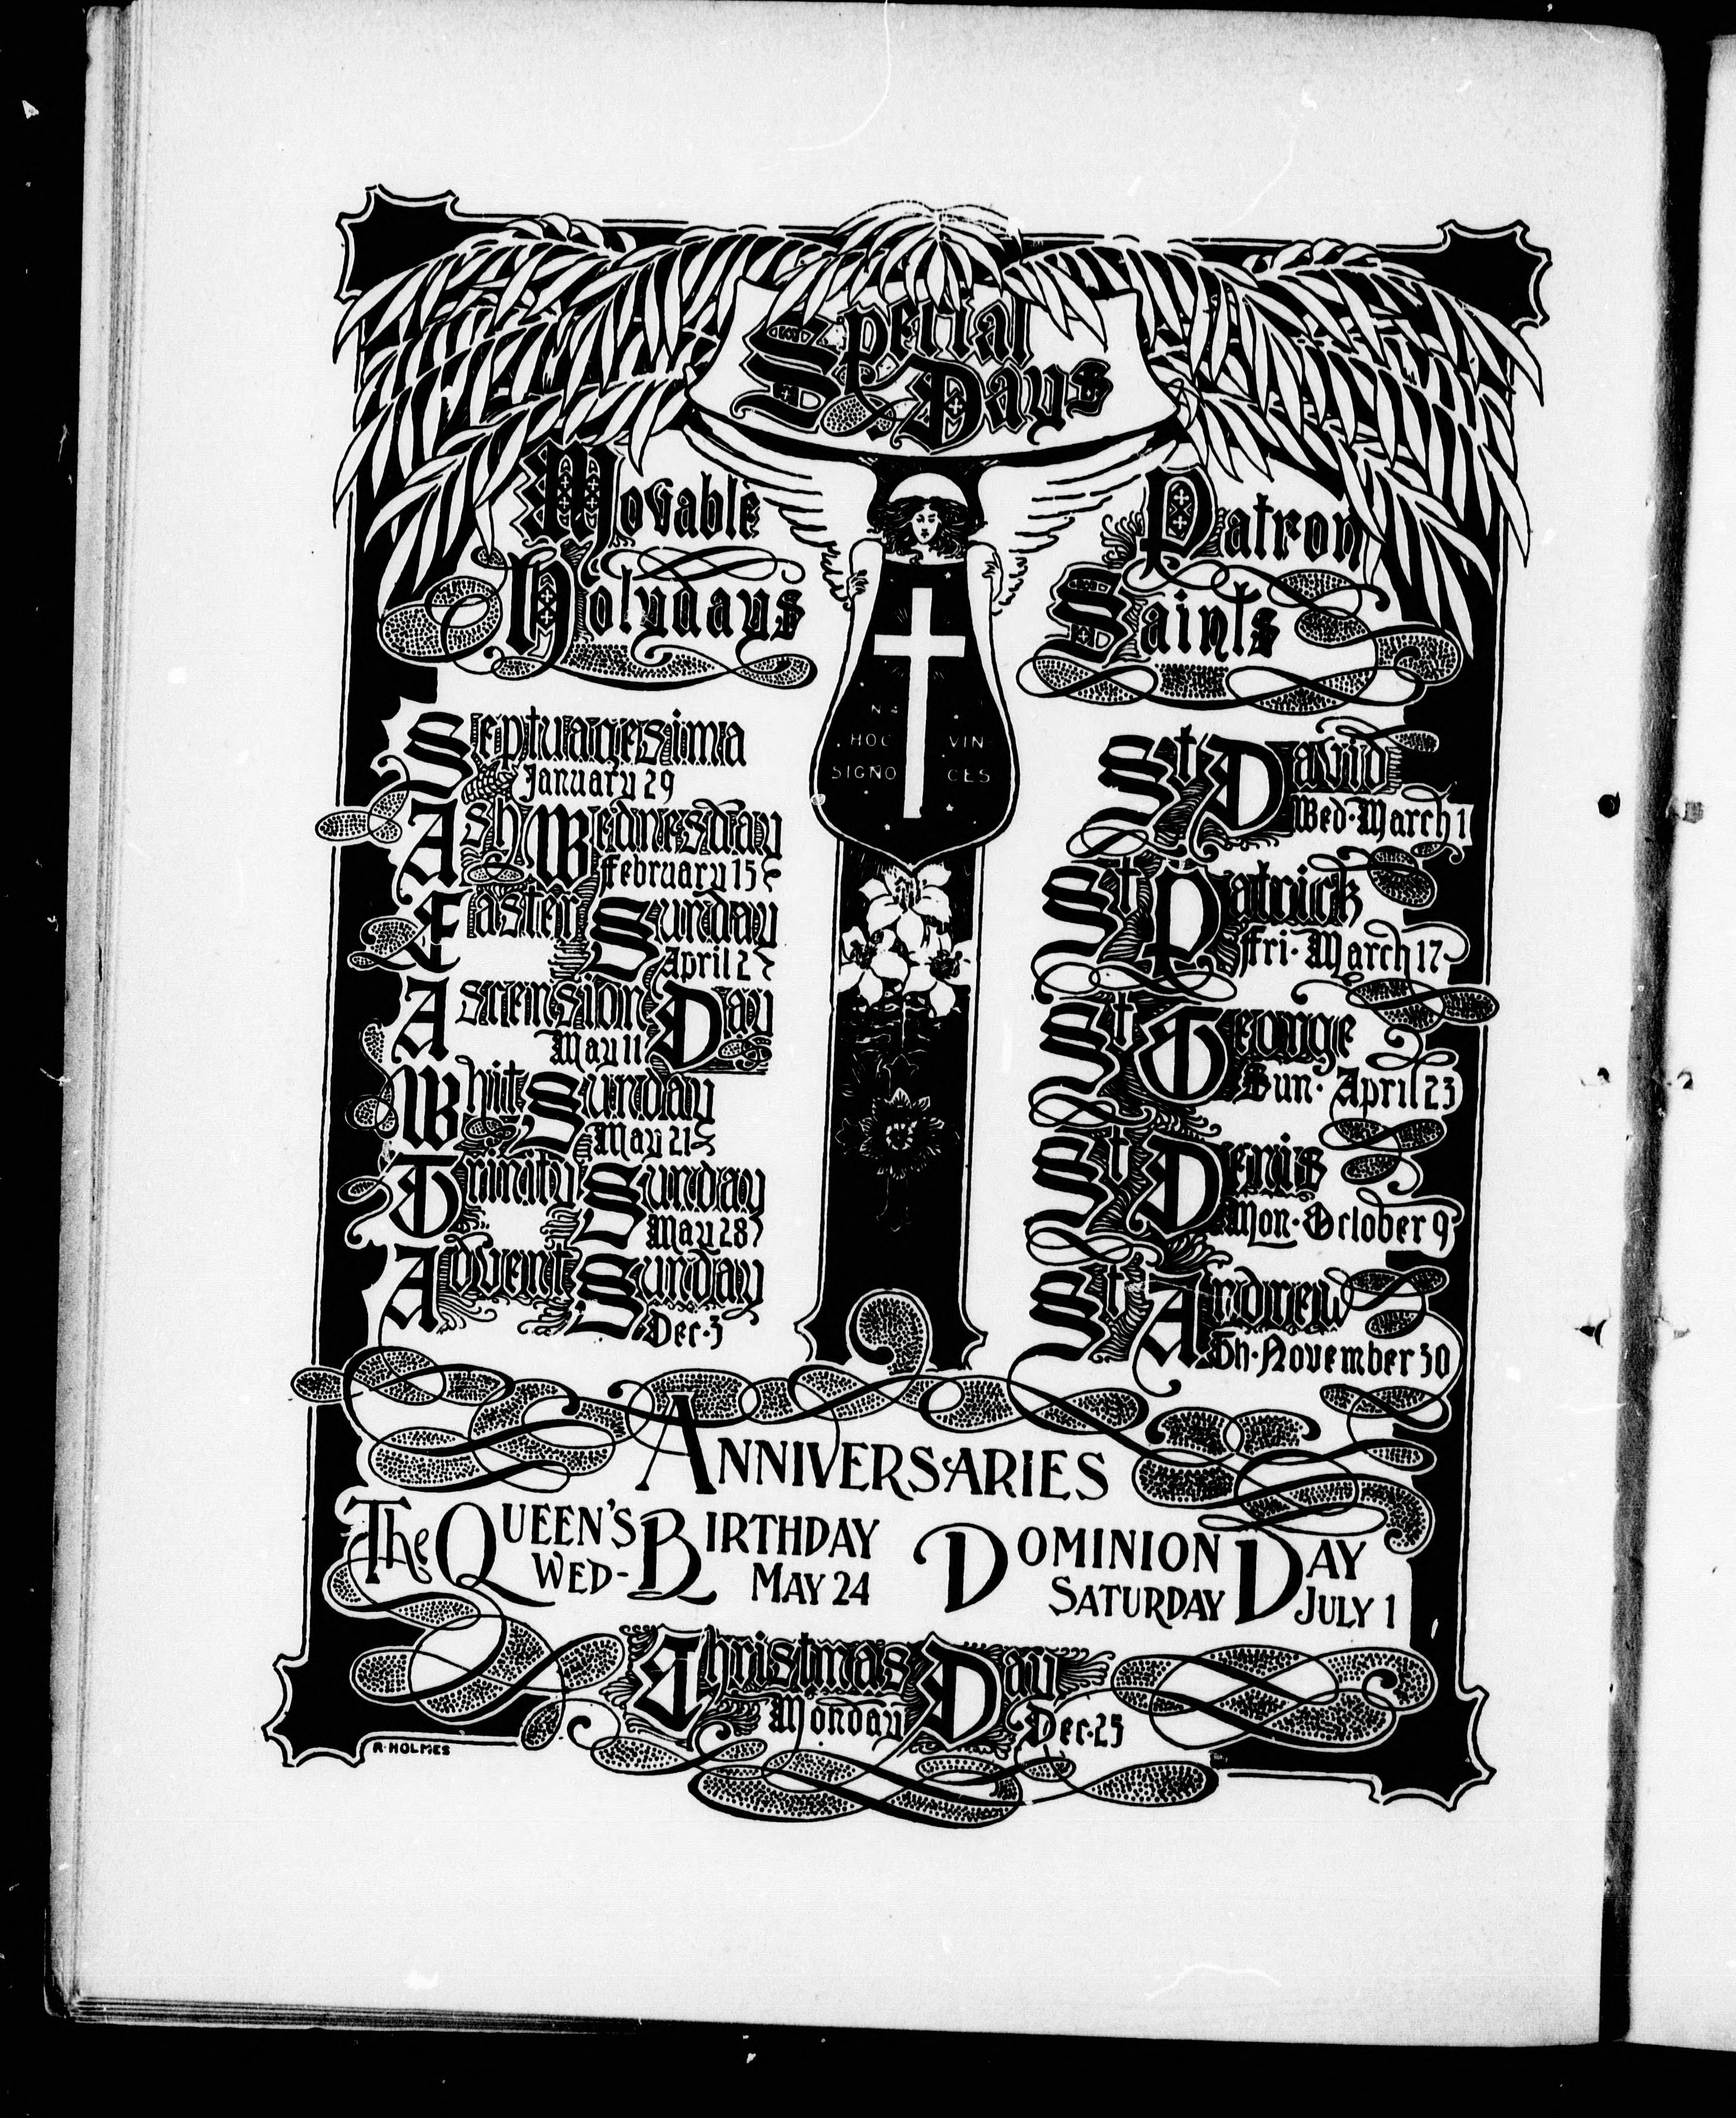 Special
Days
Movable
Holydays
Septuagesima
January 29
Ash Wednesday
February 15
Easter Sunday
April 2
Ascension Day
May 11
Whit Sunday
May 21
Trinity Sunday
May 28
Advent Sunday
Dec. 3
HOC VIN
SIGNO CES
Patron
Saints
St David
Wed. March 1
St Patrick
Fri. March 17
St George
Sun. April 23
St Denis
Mon. October 9
St Andrew
Th. November 30
ANNIVERSARIES
The QUEEN'S BIRTHDAY
WED- MAY 24
DOMINION DAY
SATURDAY JULY 1
Christmas Day
Monday Dec. 25
R. HOLMES